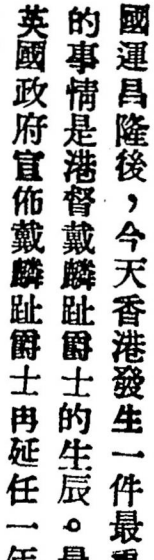 國運昌隆後，今天香港發生一件最
的事情是港督戴麟趾爵士的生辰。
英國政府宣佈戴麟趾爵士再延任一